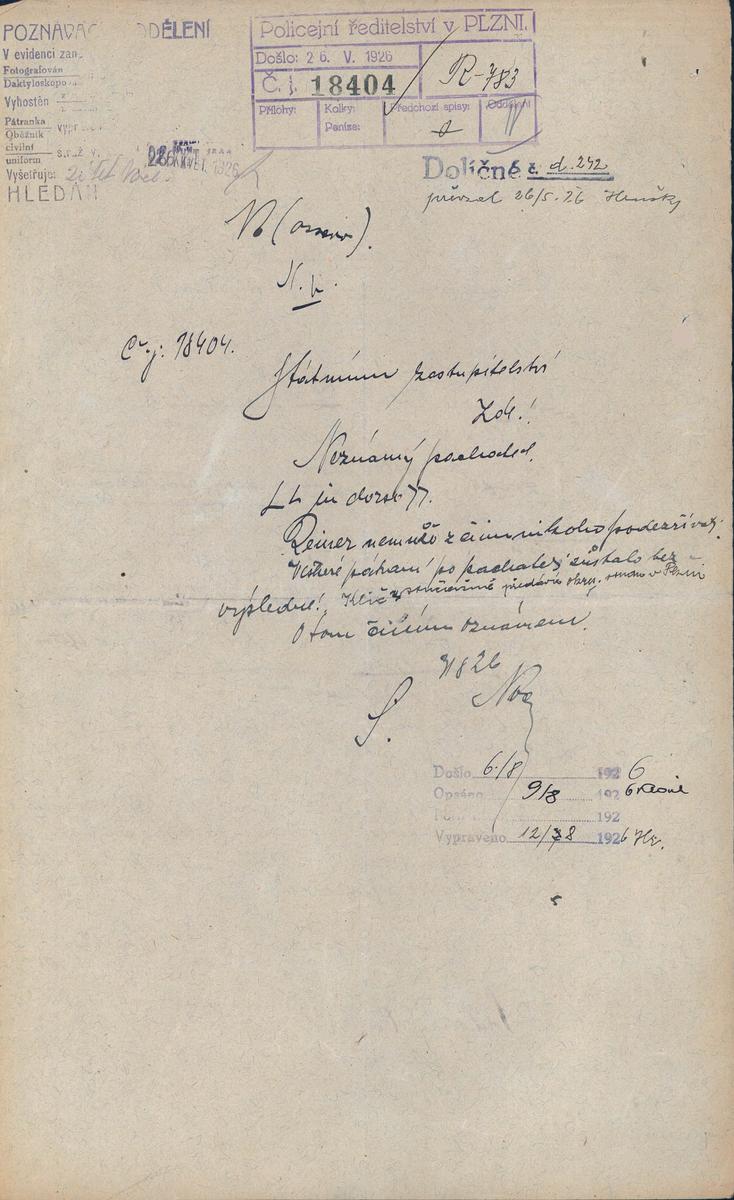 POZNÁVAC ODDĚLENÍ
V evidenci zan
Fotografován
Daktyloskopo
Vyhoštěn
Pátranka
Oběžník
civilní
uniform
Vyšetřuje:
HLEDÁN
Policejní ředitelství v PLZNI.
Došlo: 26. V. 1926
Č. j. 18404
R-783
Přílohy:
Kolky:
Peníze:
Předchozí spisy:
Oddělení
Dolíčné č. d. 242
převzal 26/5. 26
N. ú.
Č. j: 18404.
Státnímu zastupitelství
Zde!
Neznámý pachatel.
LL in dorso 77.
Reiner nemůže z činu nikoho podezřívat.
Veškeré pátrání po pachateli zůstalo bez-
výsledné! Klíč současně předávám okrs. soudu v Plzni
O tom činím oznámení.
S.
Došlo 6/8 1926
Opsáno 9/8 1926
192
Vypraveno 12/8 1926